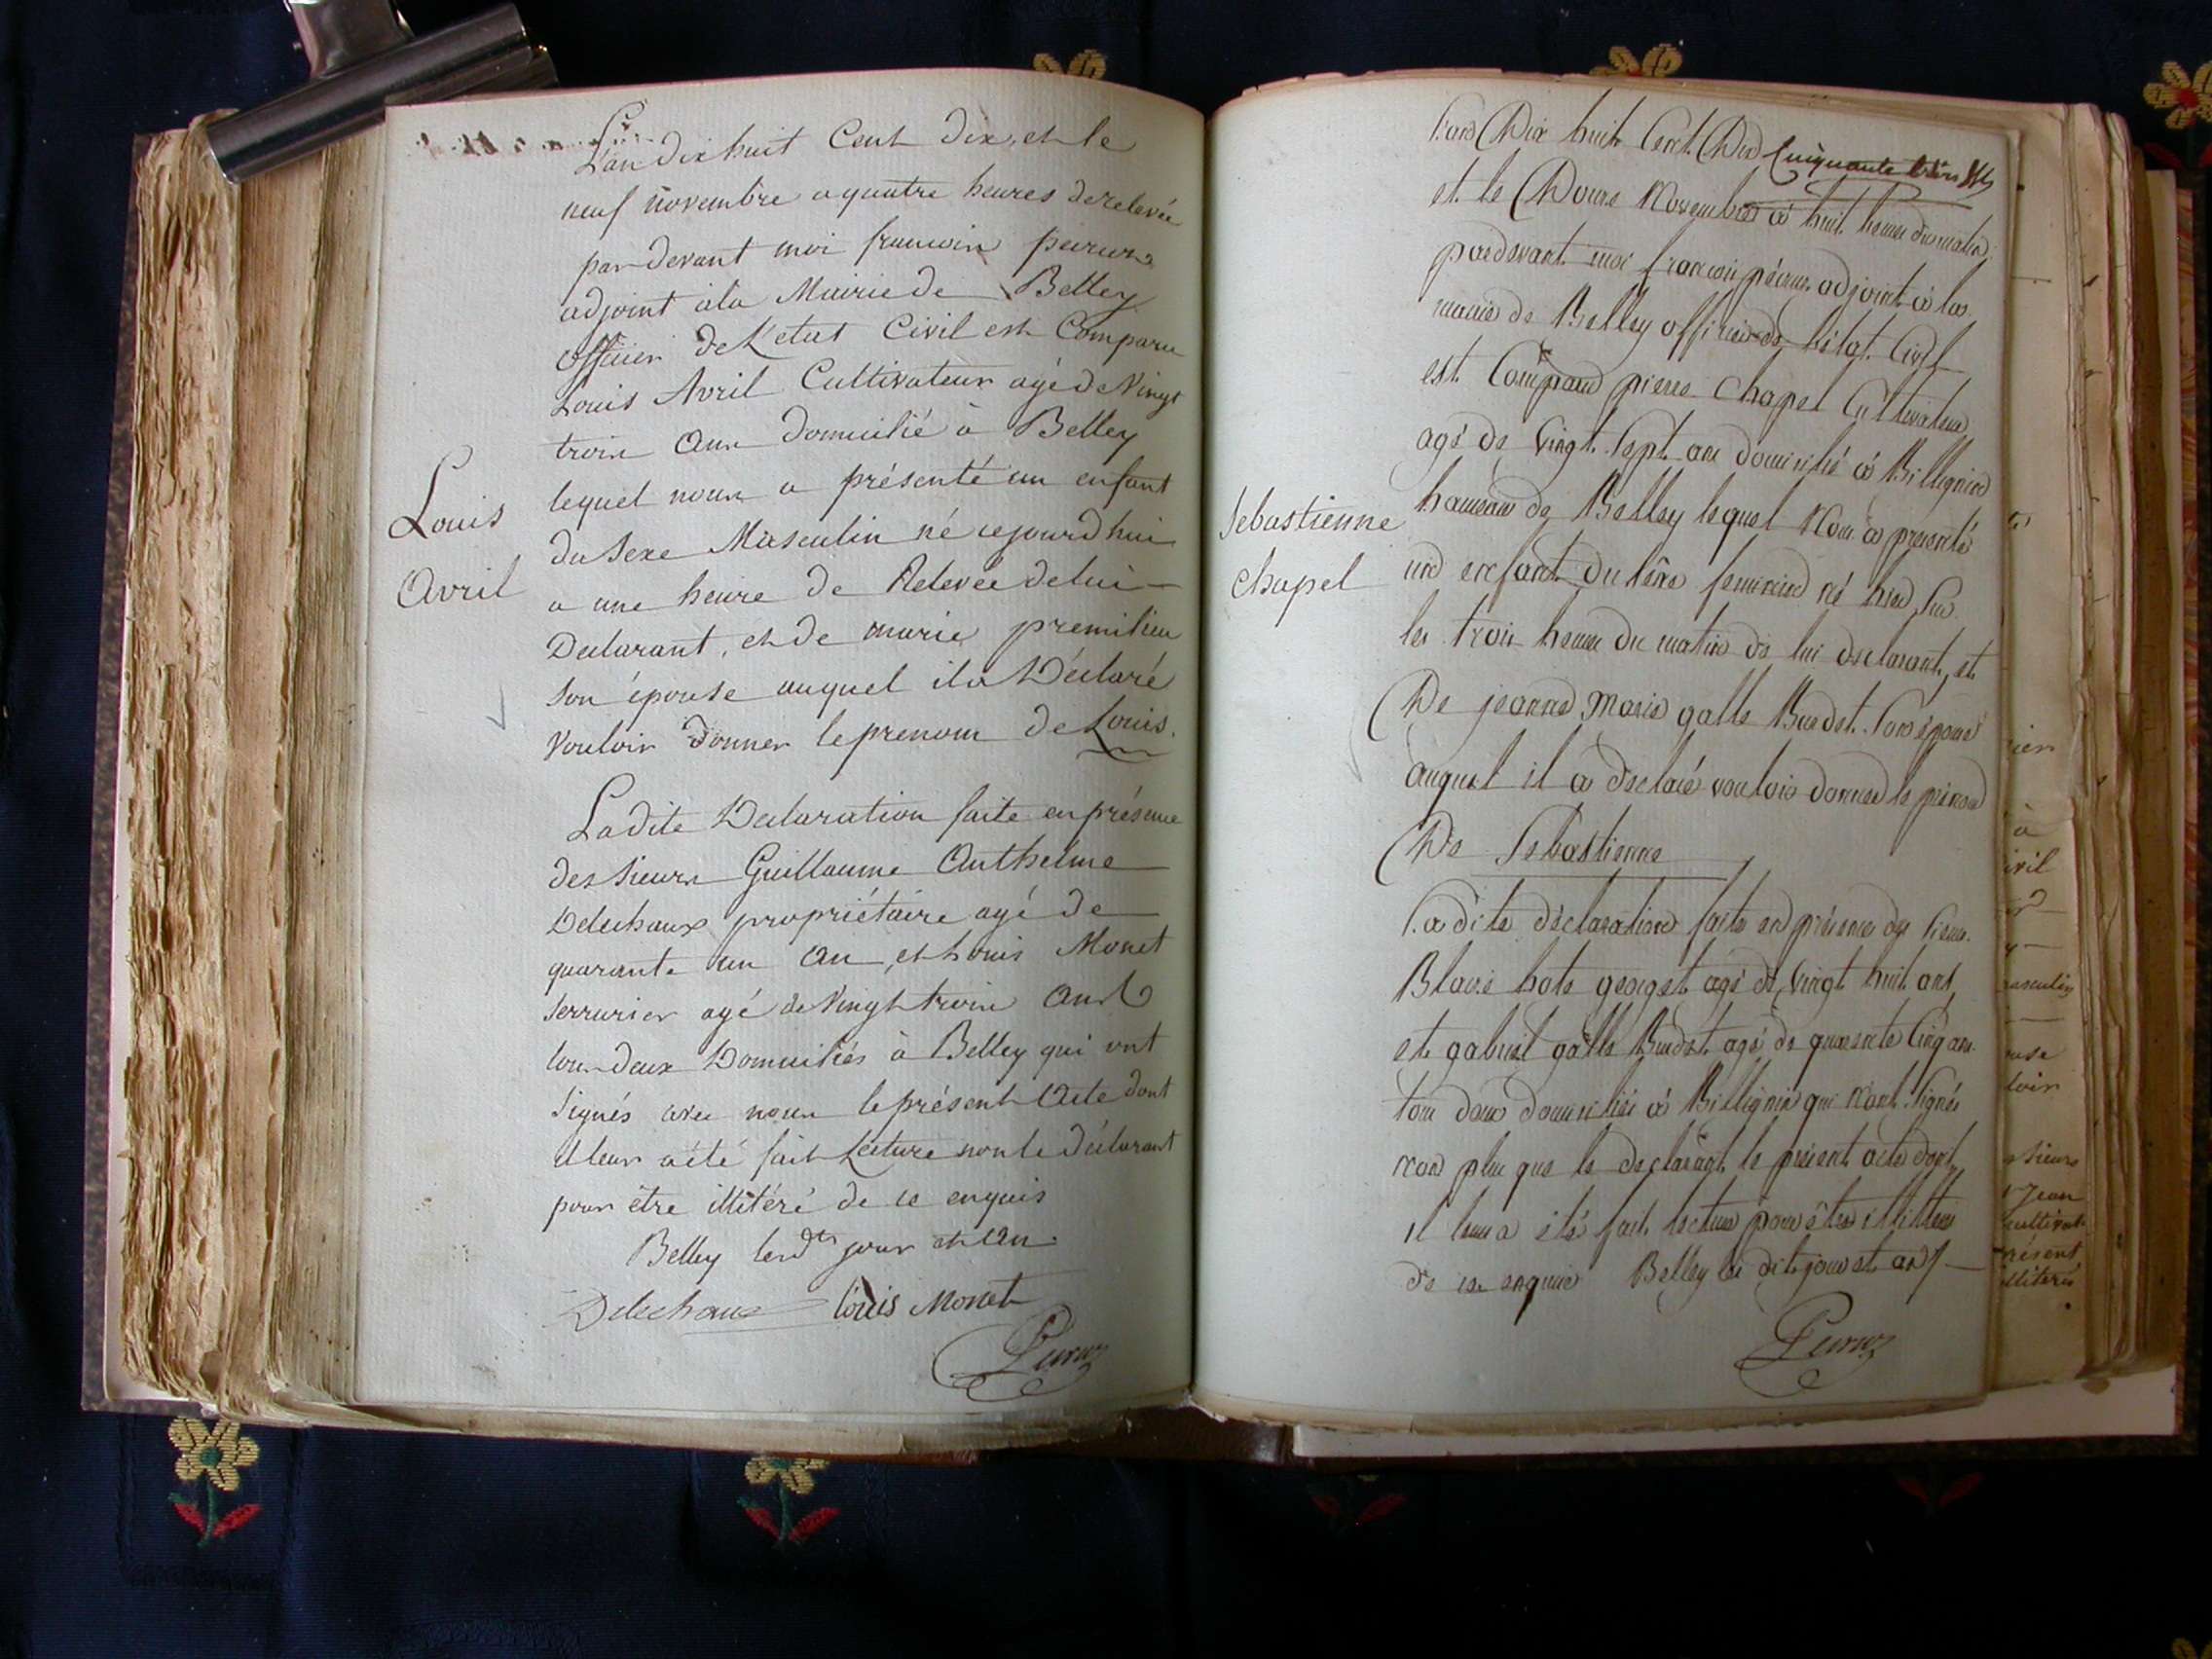 L'an dix huit Cent dix, et le
neuf novembre a quatre heures de relevée
par devant moi francois
adjoint a la Mairie de Belley
officier de L'etat Civil est Comparu
Louis Avril Cultivateur agé de Vingt
trois ans domicilié à Belley
lequel nous a présenté un enfant
du Sexe Masculin né cejourdhui
a une heure de Relevée de lui
Declarant, et de marie premilieu
son épouse auquel il a Déclaré
vouloir donner le prenom de Louis.
Louis
Avril
La dite Declaration faite en présence
des sieurs Guillaume Anthelme
Delechaux propriétaire agé de
quarante un an, et Louis Monet
serrurier agé de Vingt trois ans
tous deux Domiciliés à Belley qui ont
signés avec nous le présent Acte dont
il leur a été fait Lecture non le déclarant
pour être illitéré de ce enquis
Belley les dts jour et an.
Delechaux Louis Monet
L'an Dix huit Cent Dix
Cinquante trois
et le Douze Novembre à huit heures du matin
pardevant moi francois adjoint à la
mairie de Belley officier de l'état Civil
est Comparu pierre Chapel Cultivateur
agé de vingt sept ans domicilié à Billignin
hameau de Belley lequel Nous a presenté
un enfant du sexe feminin né hier sur
les trois heures du matin de lui declarant, et
De jeanne Marie galle Buedet son épouse
auquel il a declaré vouloir donner le prénom
De Sebastienne
Sebastienne
Chapel
La dite déclaration faite en présence des sieurs
Blaise georget agé de vingt huit ans
et gabriel galle Buedet agé de quarante Cinq ans
tous deux domiciliés à Billignin qui n'ont signés
non plus que le declarant le présent acte dont
il leur a été fait lecture pour être illitéré
de ce enquis Belley les dit jour et an
ivril
masculin
sieurs
Jean
cultivat
présent
illiteré